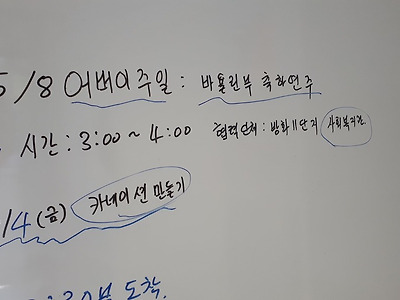 5/8 어버이주일 : 바이올린부 축하연주
시간 : 3:00 ~ 4:00 협력단체 : 방화11단지 사회복지관
/4 (금) 카네이션 만들기
도착.